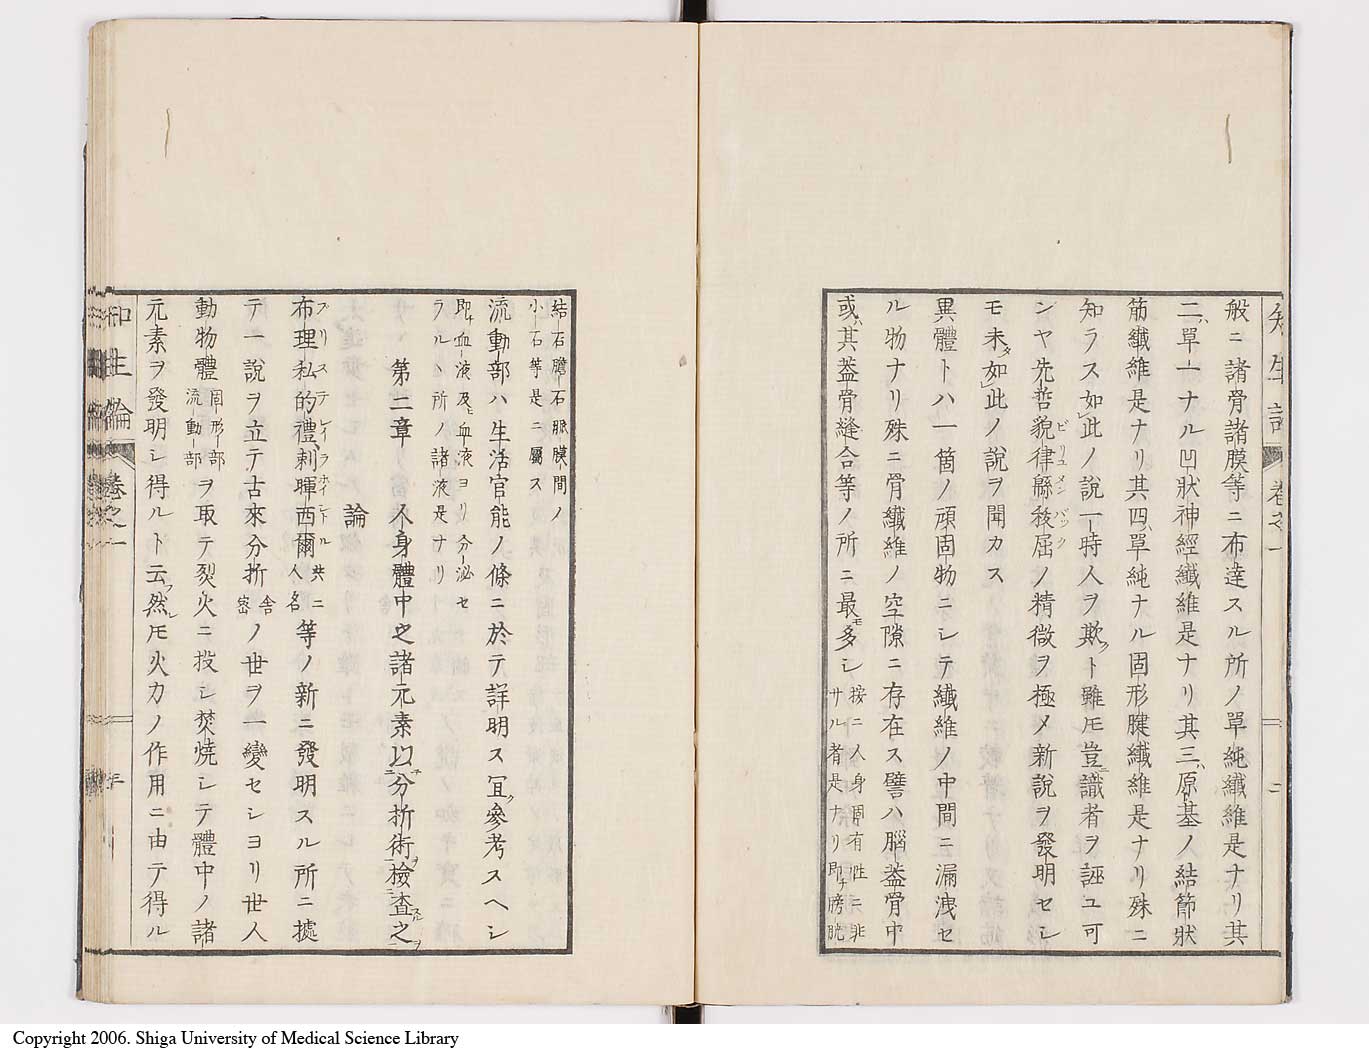 般ニ諸骨諸膜等ニ布達スル所ノ單純纖維是ナリ其
二ハ單一ナル凹狀神經纖維是ナリ其三ハ原基ノ結節狀
筋纖維是ナリ其四ハ單純ナル固形腱纖維是ナリ殊ニ
知ラス如此ノ說一時人ヲ欺クト雖𪜈豈識者ヲ誣ユ可
ンヤ先哲貌律緜稜屈ノ精微ヲ極メ新說ヲ發明セシ
ビリユメンバック
モ未タ如此ノ說ヲ聞カス
異體トハ一箇ノ頑固物ニシテ纖維ノ中間ニ漏洩セ
ル物ナリ殊ニ骨纖維ノ空隙ニ存在ス譬ハ腦葢骨中
或ハ其葢骨縫合等ノ所ニ最モ多シ
按ニ人身固有性ニ非
サル者是ナリ即チ膀胱
結石膽石脈膜間ノ
小石等是ニ屬ス
流動部ハ生活官能ノ條ニ於テ詳明ス冝ク參考スヘシ
即血液及ヒ血液ヨリ分泌セ
ラル丶所ノ諸液是ナリ
第二章 人身體中之諸元素以分折術檢査之
論
布理私的禮剌暉西爾
ブリステレイラホイシトル
共ニ
人名
等ノ新ニ發明スル所ニ據
テ一說ヲ立テ古來分折
舍
密
ノ世ヲ一變セシヨリ世人
動物體
固形部
流動部
ヲ取テ裂火ニ投シ焚燒シテ體中ノ諸
元素ヲ發明シ得ルト云フ然ル𪜈火力ノ作用ニ由テ得ル
知生論 卷之一
二
Copyright 2006. Shiga University of Medical Science Library